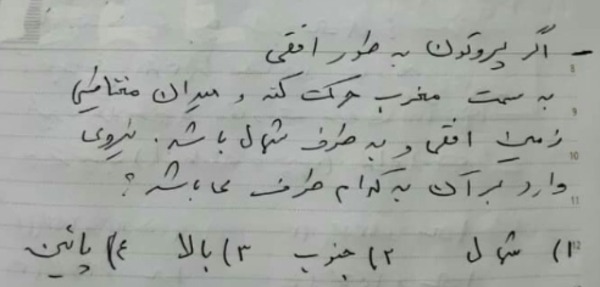 - اگر پروتون به طور افقی
به سمت مغرب حرکت کند و میدان مغناطیسی
زمین افقی و به طرف شمال باشد. نیروی
وارد بر آن به کدام طرف می باشد؟
۱) شمال ۲) جنوب ۳) بالا ۴) پائین